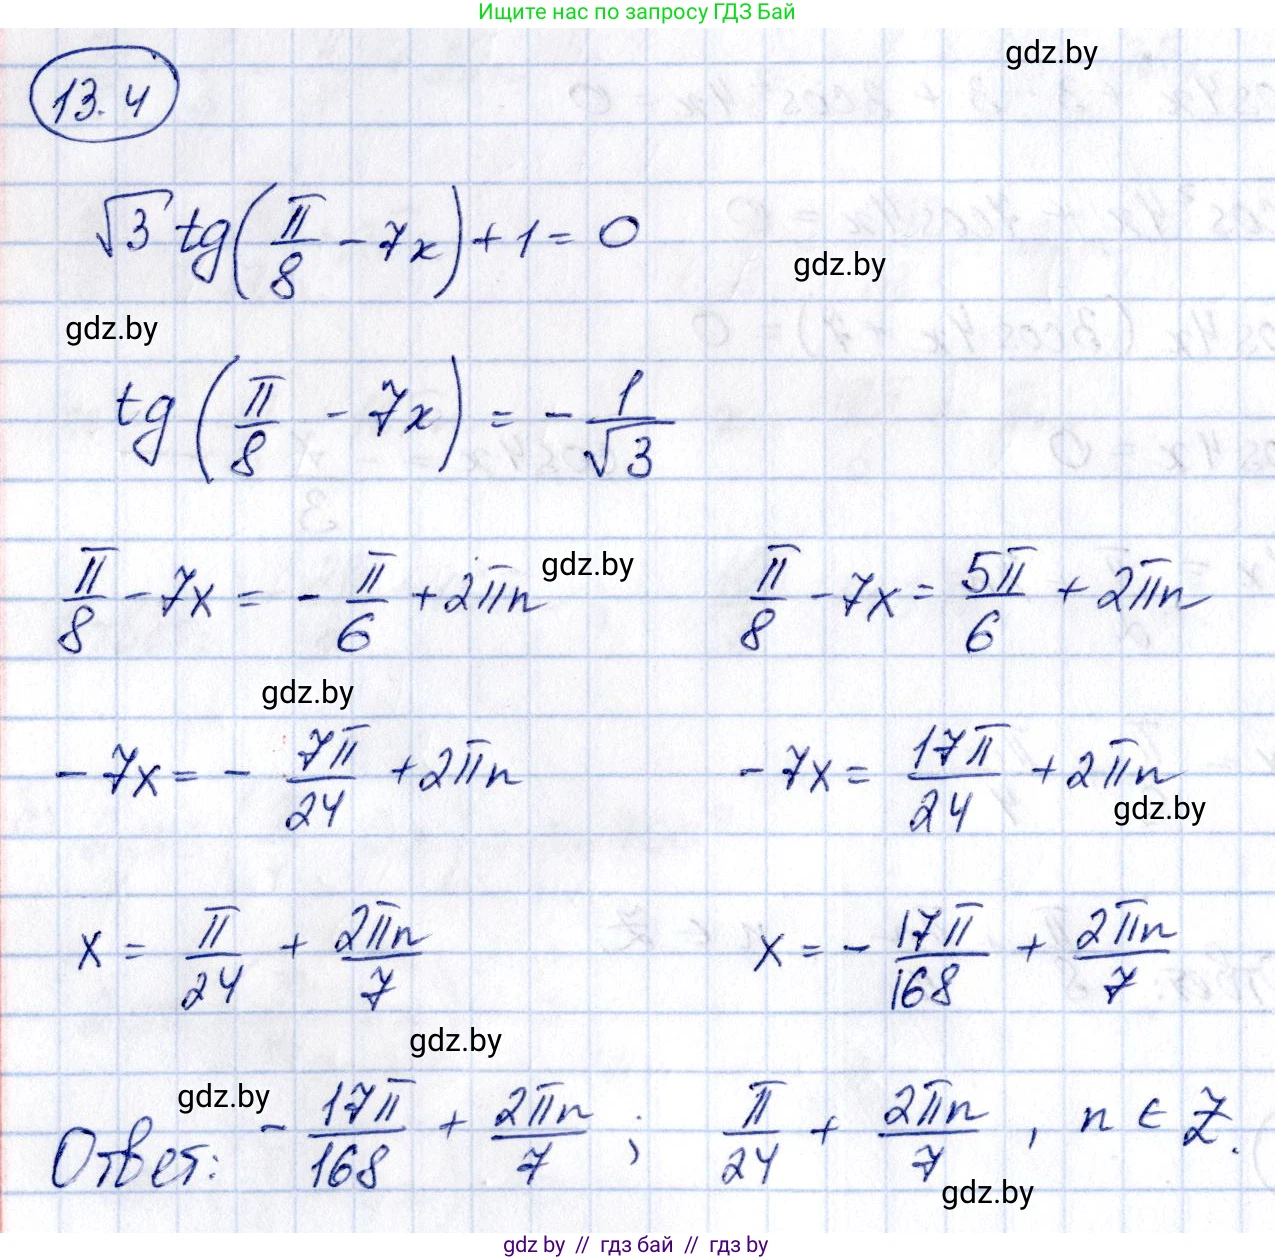 Ищите нас по запросу ГДЗ Бай
gdz.by
13.4
√3 tg(π/8 - 7x) + 1 = 0
gdz.by
gdz.by
tg(π/8 - 7x) = - 1/√3
gdz.by
π/8 - 7x = - π/6 + 2πn    π/8 - 7x = 5π/6 + 2πn
gdz.by
- 7x = - 7π/24 + 2πn    - 7x = 17π/24 + 2πn
gdz.by
x = π/24 + 2πn/7    x = - 17π/168 + 2πn/7
gdz.by
gdz.by
Ответ: - 17π/168 + 2πn/7 ; π/24 + 2πn/7 , n ∈ Z.
gdz.by
gdz by // гдз бай // гдз by